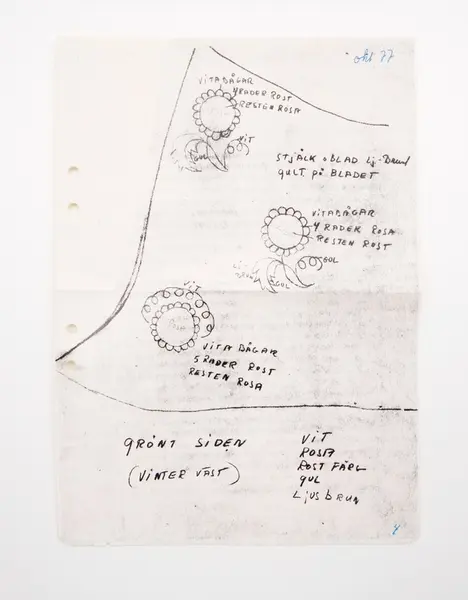 okt 77
VITABÅGAR
4RADER ROST
RESTEN ROSA
VIT
STJÄLK o BLAD Lj-
GULT på BLADET
VITABÅGAR
4 RADER ROSA
RESTEN ROST
GUL
GUL
VIT
ROSA
VITA BÅGAR
5 RADER ROST
RESTEN ROSA
GRÖNT SIDEN
(VINTER VÄST)
VIT
ROSA
ROST FÄRG
GUL
LJUSBRUN